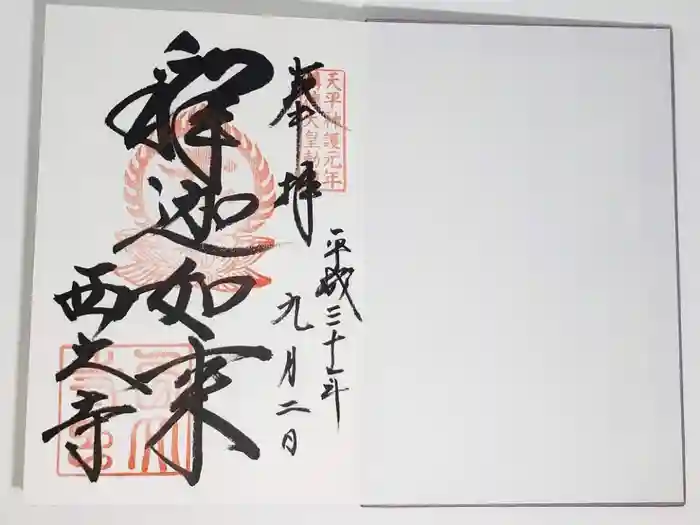 天平神護元年
天皇勅
奉拝
平成三十年
九月二日
釋迦如来
西大寺